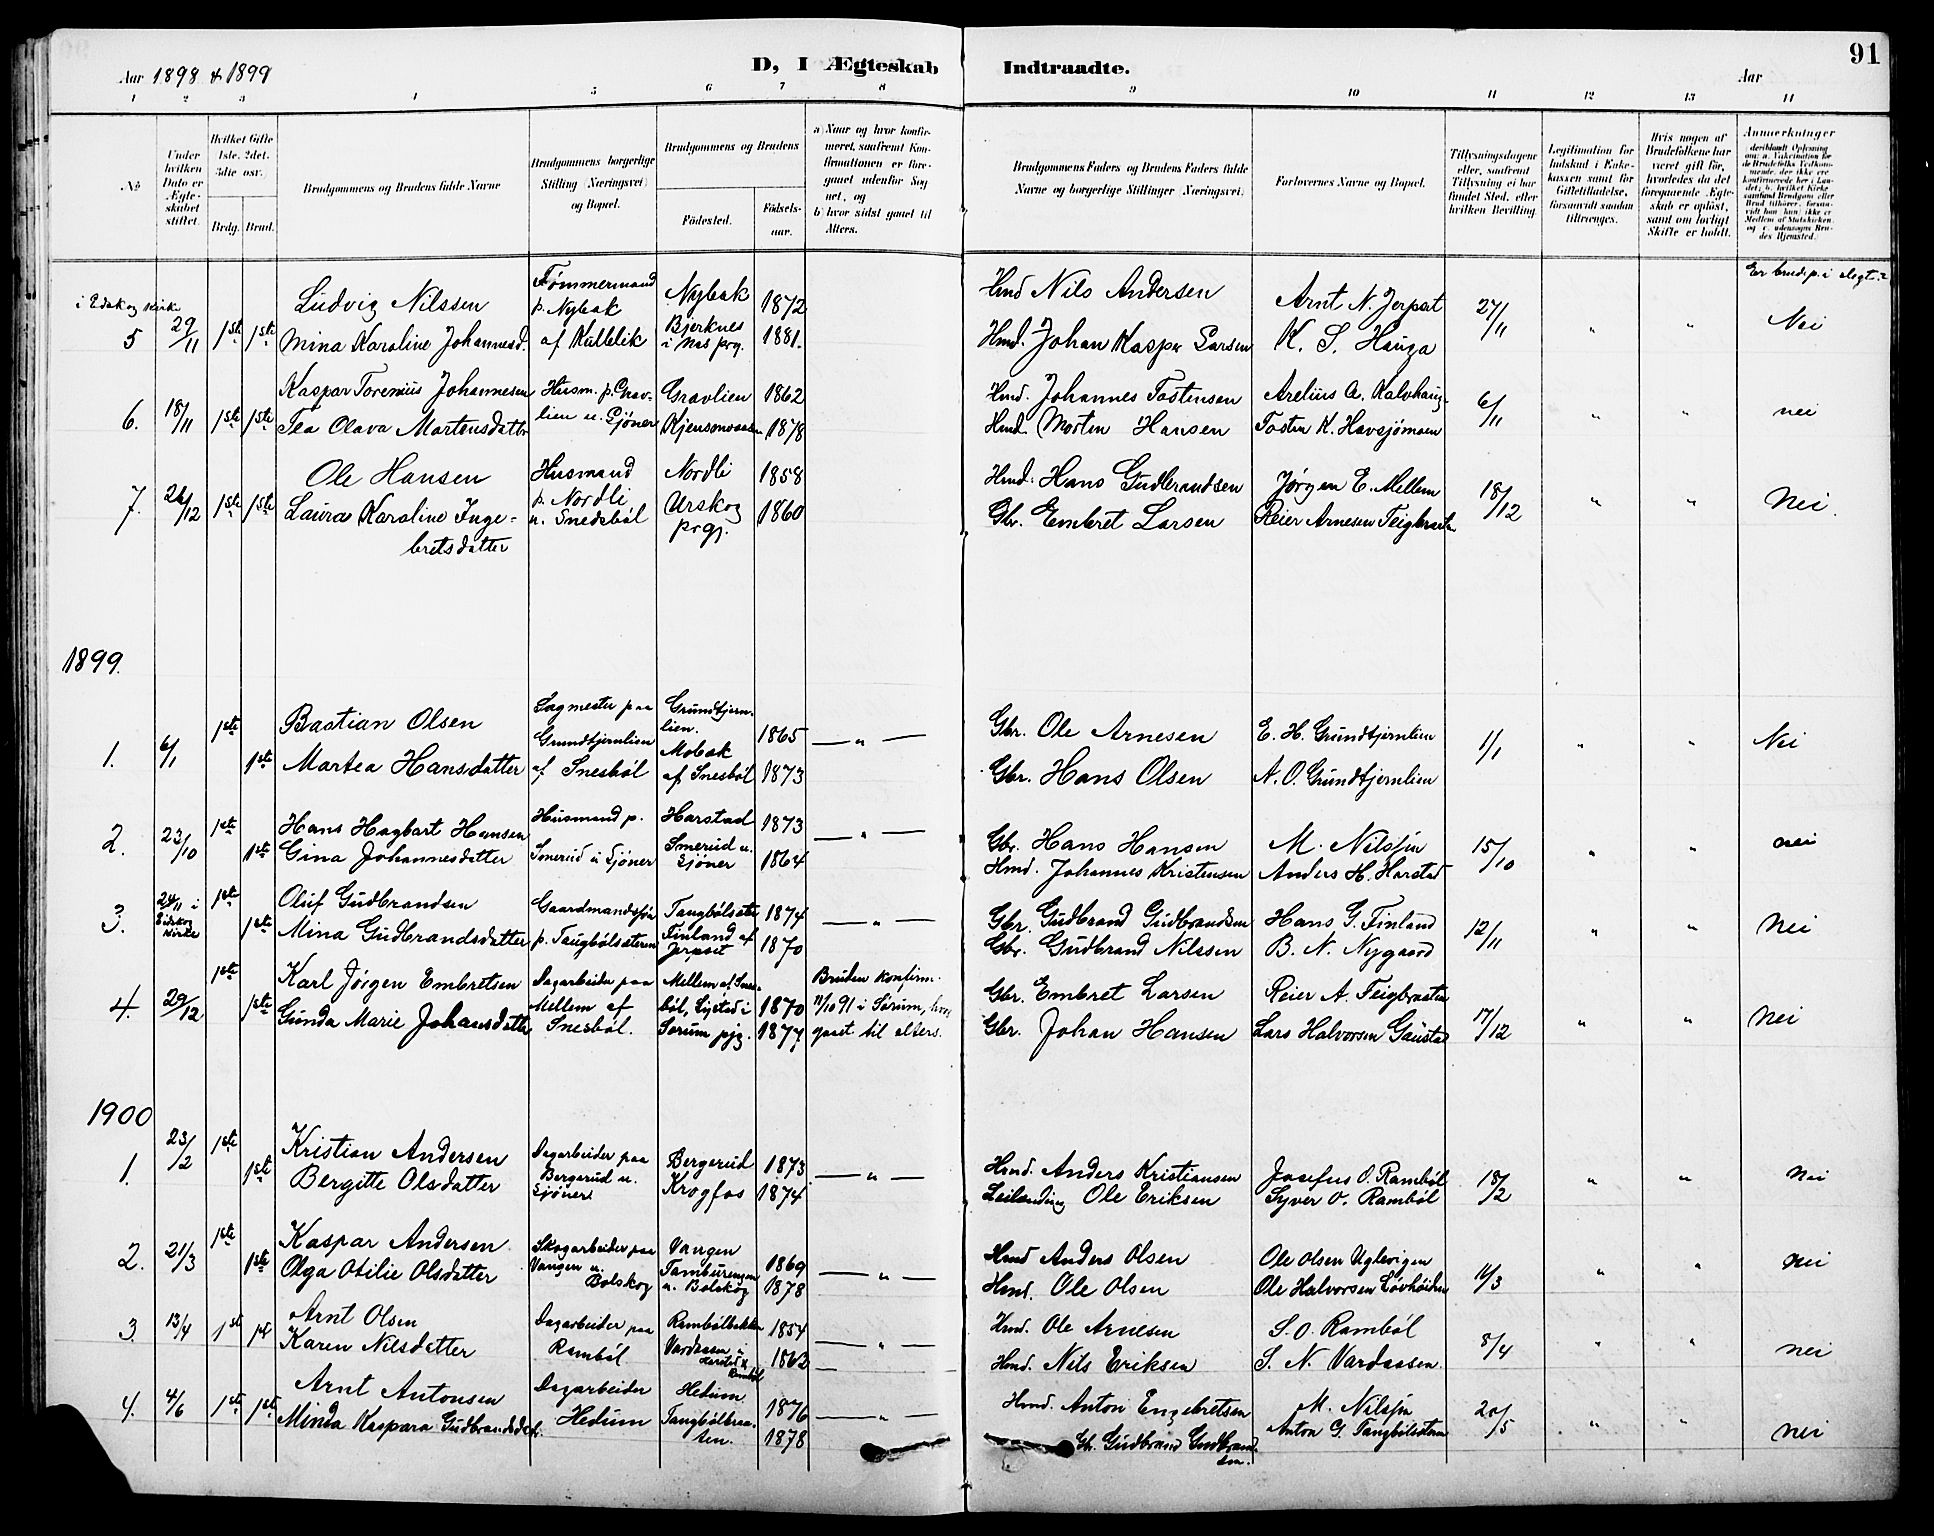 91
Aar 1898 & 1899
D, I Ægteskab Indtraadte.
Aar
1 2 3 4 5 6 7 8 9 10 11 12 13 14
No
Under hvilken Dato er Ægteskabet stiftet.
Hvilket Gifte 1ste, 2det, 3die osv.
Brdg. Brud.
Brudgommens og Brudens fulde Navne
Brudgommens borgerlige Stilling (Næringsvei) og Bopæl.
Brudgommens og Brudens
Fødested.
Fødselsaar.
a) Naar og hvor konfirmeret, saafremt Konfirmationen er foregaaet udenfor Sognet, og
b) hvor sidst gaaet til Alters.
Brudgommens Faders og Brudens Faders fulde Navne og borgerlige Stillinger (Næringsvei).
Forlovernes Navne og Bopæl.
Tillysningsdagene eller, saafremt Tillysning ei har fundet Sted, efter hvilken Bevilling.
Legitimation for Indskud i Enkekassen samt for Giftetilladelse, forsaavidt saadan tiltrænges.
Hvis nogen af Brudefolkene har været gift før, hvorledes da det foregaaende Ægteskab er opløst, samt om lovligt Skifte er holdt.
Anmærkninger
Er brudep. i slegt?
i Eidskog kirke
5 29/11 1ste 1ste Ludvig Nilssen Tømmermand p. Nybak af Kallelik Nybak 1872 Hmd Nils Andersen Arnt N. Jerpset 27/11 " " Nei
Mina Karoline Johannesd. Bjerknes i Nes prg. 1881. Hmd. Johan Kasper Larsen K. S. Hauga
6. 18/11 1ste 1ste Kaspar Torenius Johannesen Husm. p. Gravlien u. Sjöner Gravlien 1862 Hmd. Johannes Tostensen Arelius A. Kalvhaug 6/11 " " nei
Tea Olava Martensdatter 1878 Hmd. Morten Hansen Tosten K. Havsjömoen
7. 26/12 1ste 1ste Ole Hansen Husmand p. Nordli u. Snedsböl Nordli 1858 Hmd. Hans Gudbrandsen Jørgen E. Mellem 18/12 " " Nei.
Laura Karoline Ingebretsdatter Urskog prgj. 1860 Gbr. Embret Larsen Reier Arnesen Teigbraaten
1899.
1. 6/1 1ste Bastian Olsen Sagmester paa Grundtjernlien af Snesböl Grundtjernlien. 1865 — " — Gbr. Ole Arnesen E. H. Grundtjernlien 1/1 " " Nei
1ste Martea Hansdatter Mobak af Snesböl 1873 Gbr. Hans Olsen A. O. Grundtjernlien
2. 23/10 1ste Hans Hagbart Hansen Husmand p. Smerud u Sjöner Harstad 1873 — " — Gbr. Hans Hansen M. Nilsøn 15/10 " " nei
1ste Gina Johannesdatter Smerud u. Sjöner 1864 Hmd. Johannes Kristensen Anders H. Harstad
3. 24/11 i Eidskog kirke 1ste Oluf Gudbrandsen Gaardmandssøn p. Taugbølsæteren Taugbølsæte 1874 — " — Gbr. Gudbrand Gudbrandsen Hans G. Finland 12/11 " " Nei
1ste Mina Gudbrandsdatter Finland af Jerpset 1870 Gbr. Gudbrand Nilssen B. N. Nygaard
4. 29/12 1ste Karl Jørgen Embretsen Dagarbeider paa Mellem af Snesböl. Mellem af Snesböl, Lysted i Sørum pjg. 1870 Bruden konfirm. 11/10 91 i Sørum, hvor gaaet til alters. Gbr. Embret Larsen Reier A. Teigbraaten 17/12 " " Nei
1ste Gunda Marie Johansdatter 1877 Gbr. Johan Hansen Lars Halvorsen Gaustad
1900
1. 23/2 1ste Kristian Andersen Dagarbeider paa Bergerud u. Sjöner Bergerud 1873 — " — Hmd. Anders Kristiansen Josefus O. Ramböl 18/2 " " Nei
1ste Bergitte Olsdatter Krogfos 1874 Leilending Ole Eriksen Syver O. Ramböl
2. 21/3 1ste Kaspar Andersen Skogarbeider paa Vangen u. Bolskog Vangen 1869 — " — Hmd Anders Olsen Ole Olsen Uglevigen 11/3 " " nei
1ste Olga Otilie Olsdatter Tamburengen u. Bolskog 1878 Hmd. Ole Olsen Ole Halvorsen Løvhöiden
3. 13/4 1st 1st Arnt Olsen Dagarbeider paa Ramböl Rambölbakken 1854 — " — Hmd. Ole Arnesen S. O. Ramböl 8/4 " " nei
Karen Nilsdatter Vardaasen u Harstad 1862 — Hmd. Nils Eriksen S. N. Vardaasen
4. 4/6 1ste 1ste Arnt Antonsen Dagarbeider Hedum Hedum 1876 — " — Hmd. Anton Engebretsen M. Nilsøn 20/5 " " nei
Minda Kaspara Gudbrandsdatt. Taugbölbraaten. 1878 Gbr. Gudbrand Gudbrandsen. Anton G. Taugbölsæteren